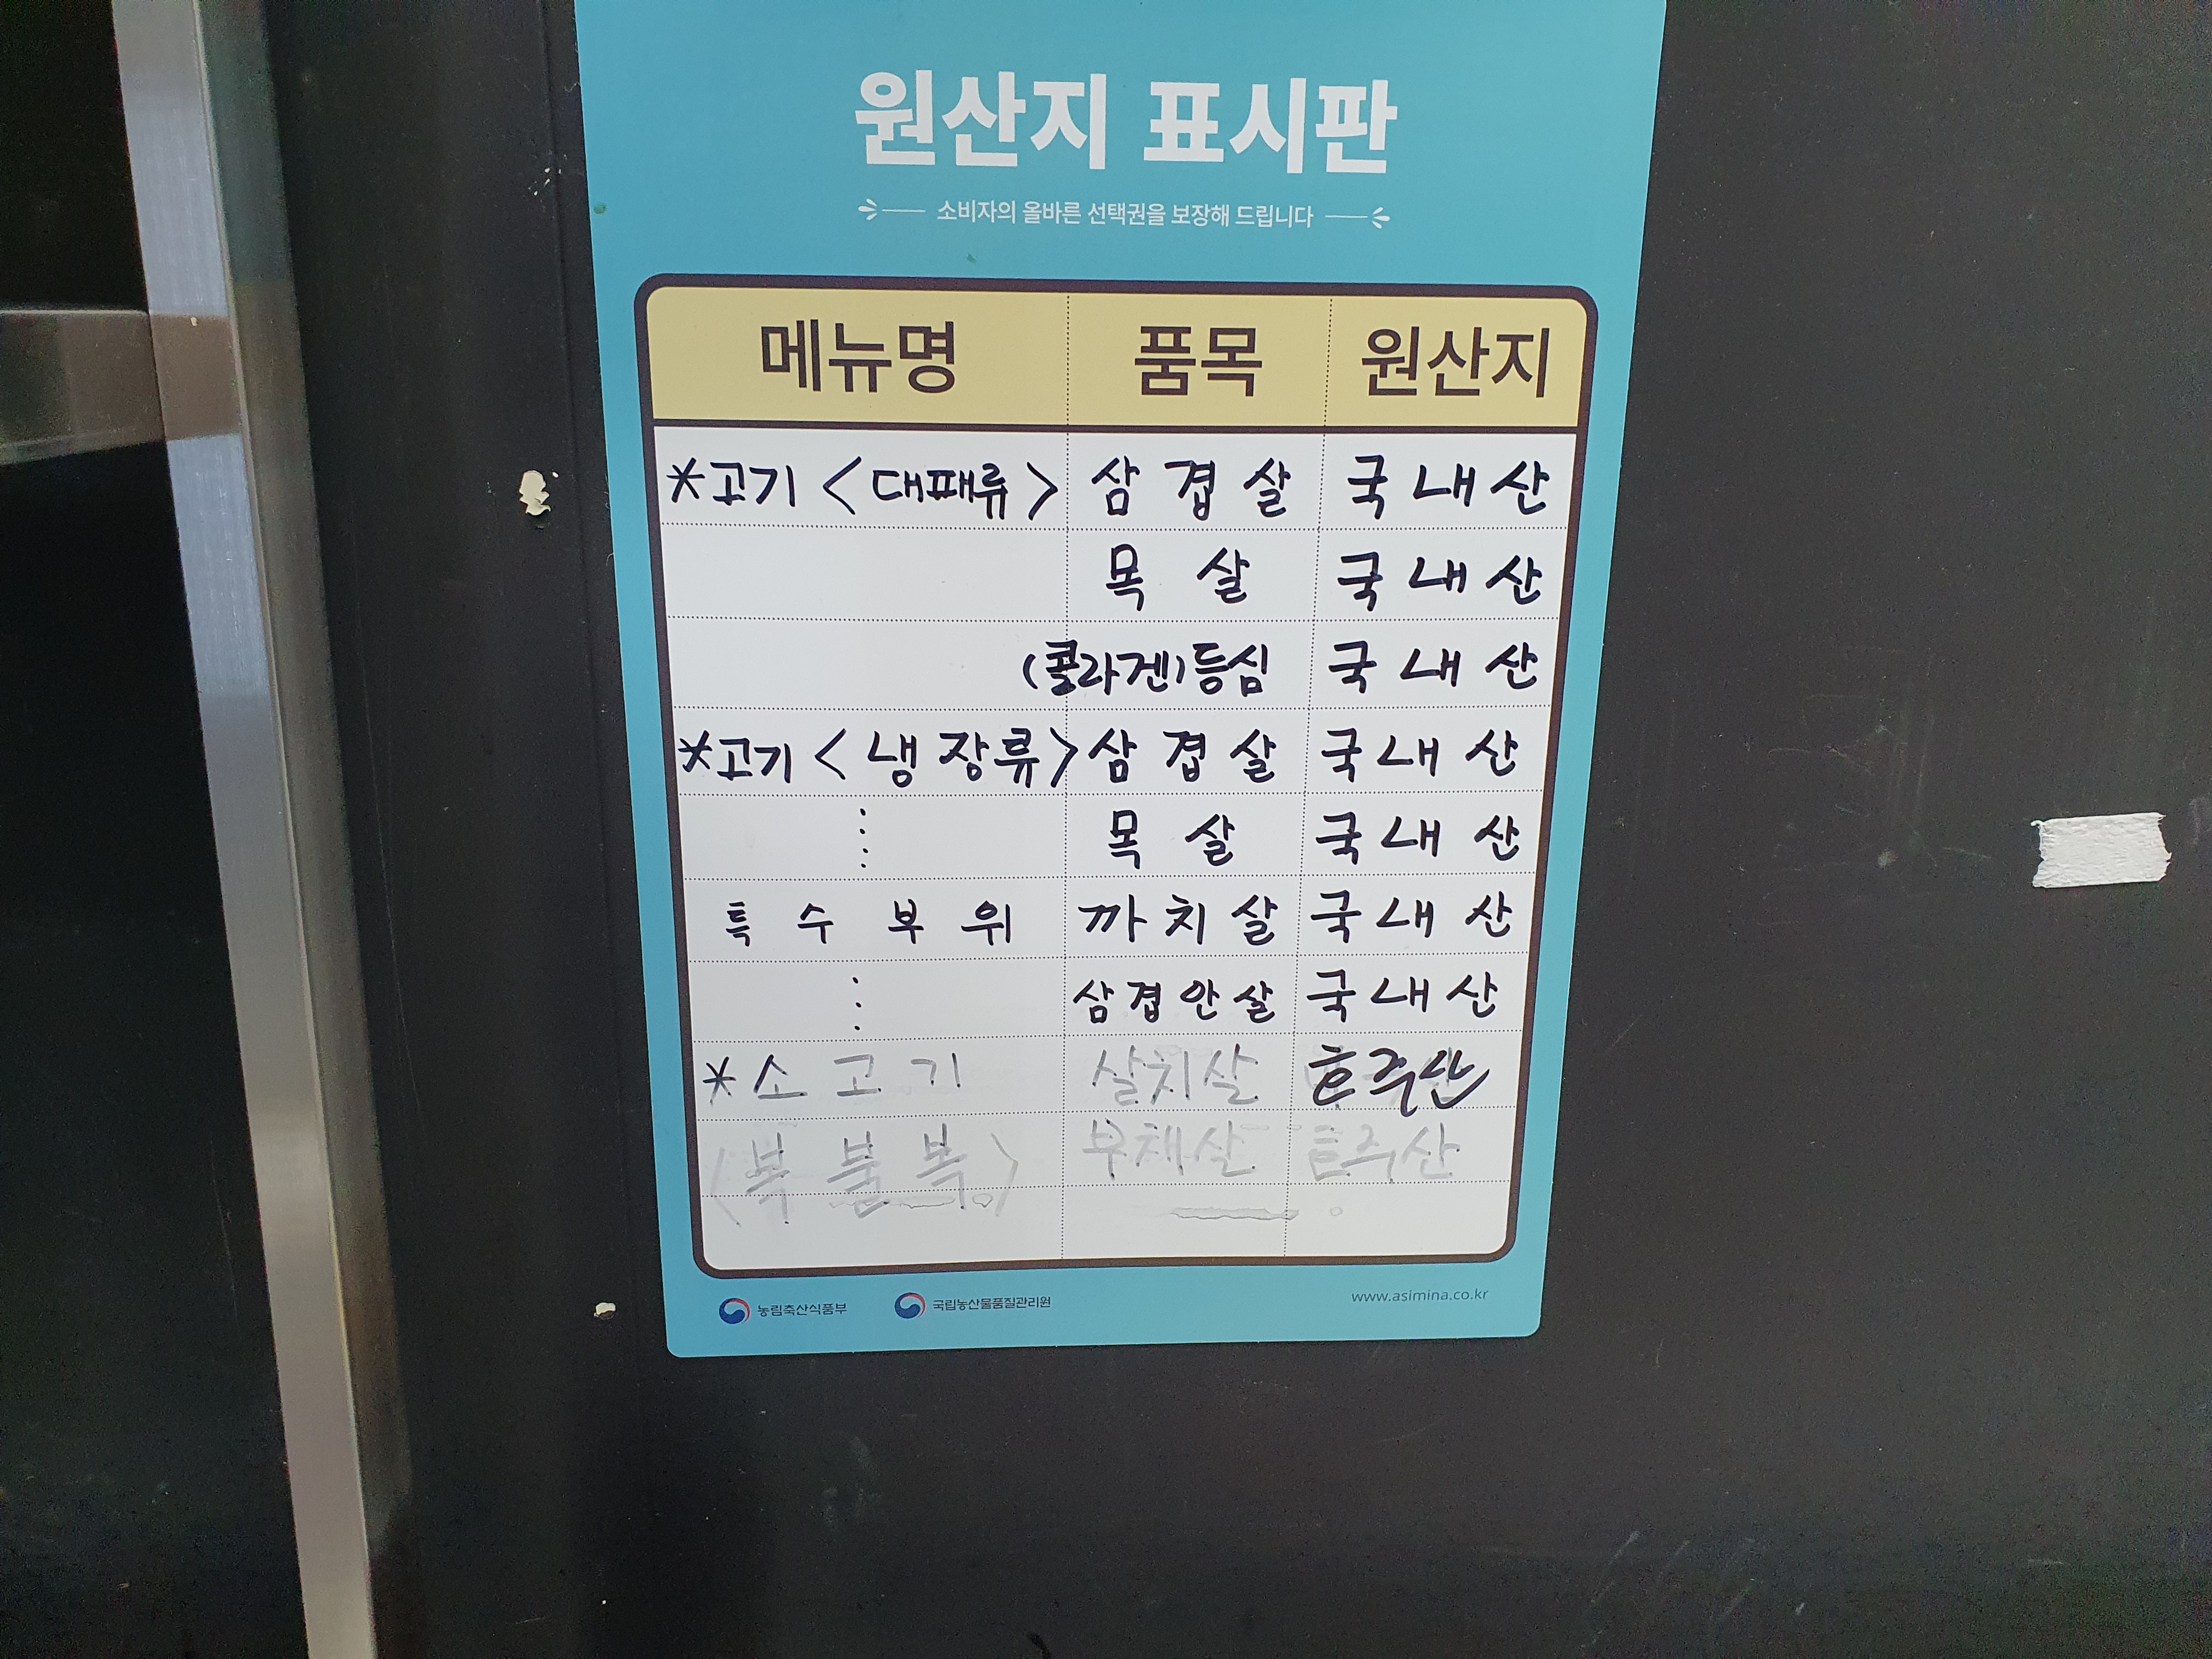 원산지 표시판
소비자의 올바른 선택권을 보장해 드립니다
메뉴명 품목 원산지
*고기 <대패류> 삼겹살 국내산
목살 국내산
(콜라겐)등심 국내산
*고기 <냉장류> 삼겹살 국내산
⋮ 목살 국내산
특수부위 까치살 국내산
⋮ 삼겹안살 국내산
*소고기 살치살 호주산
<복불복> 부채살 호주산
농림축산식품부 국립농산물품질관리원 www.asimina.co.kr